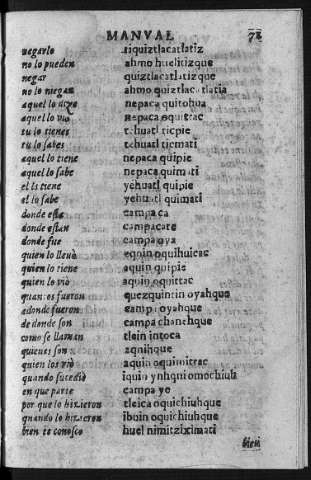 MANVAL 72
negarlo tiquiztlacatlatiz
no lo pueden ahmo huelitizque
negar quiztlacatlatizque
no lo niegan ahmo quiztlacatlatia
aquel lo dize nepaca quitohua
aquel lo vio nepaca oquittac
tu lo tienes tehuatl ticpie
tu lo sabes tehuatl ticmati
aquel lo tiene nepaca quipie
aquel lo sabe nepaca quimati
el lo tiene yehuatl quipie
el lo sabe yehuatl quimati
donde esta campa ca
donde estan campacate
donde fue campa oya
quien lo lleuò aquin oquihuicac
quien lo tiene aquin quipie
quien lo viò aquin oquittac
quantos fueron quezquintin oyahque
adonde fueron campa oyahque
de donde son campa chanehque
como se llaman tlein intoca
quienes son aquihque
quien los viò aquin oquimittac
quando sucediò iquin omochiuh
en que parte campa yo
por que lo hizieron tleica oquichiuhque
quando lo hizieron oquichiuhque
bien te conosco huel nimitziximati
bien